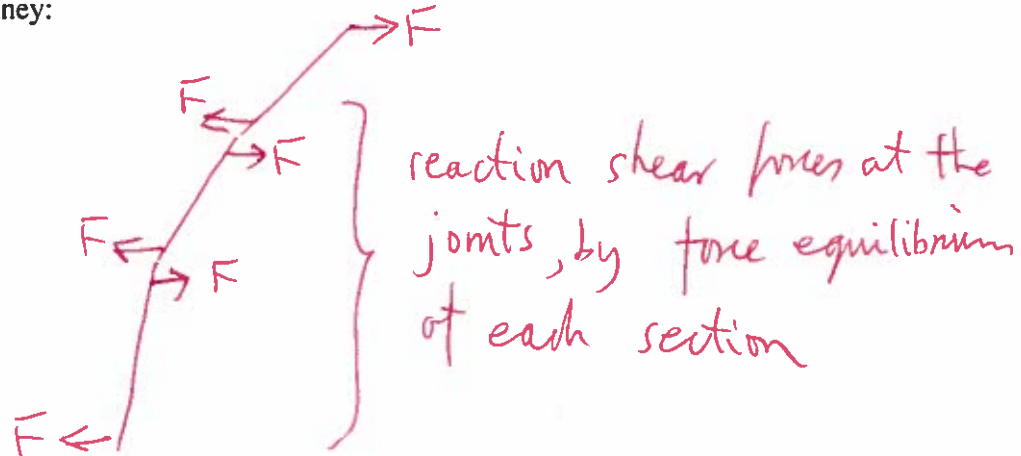 ney:
F
F
F
reaction shear forces at the
F
joints, by force equilibrium
F
of each section
F